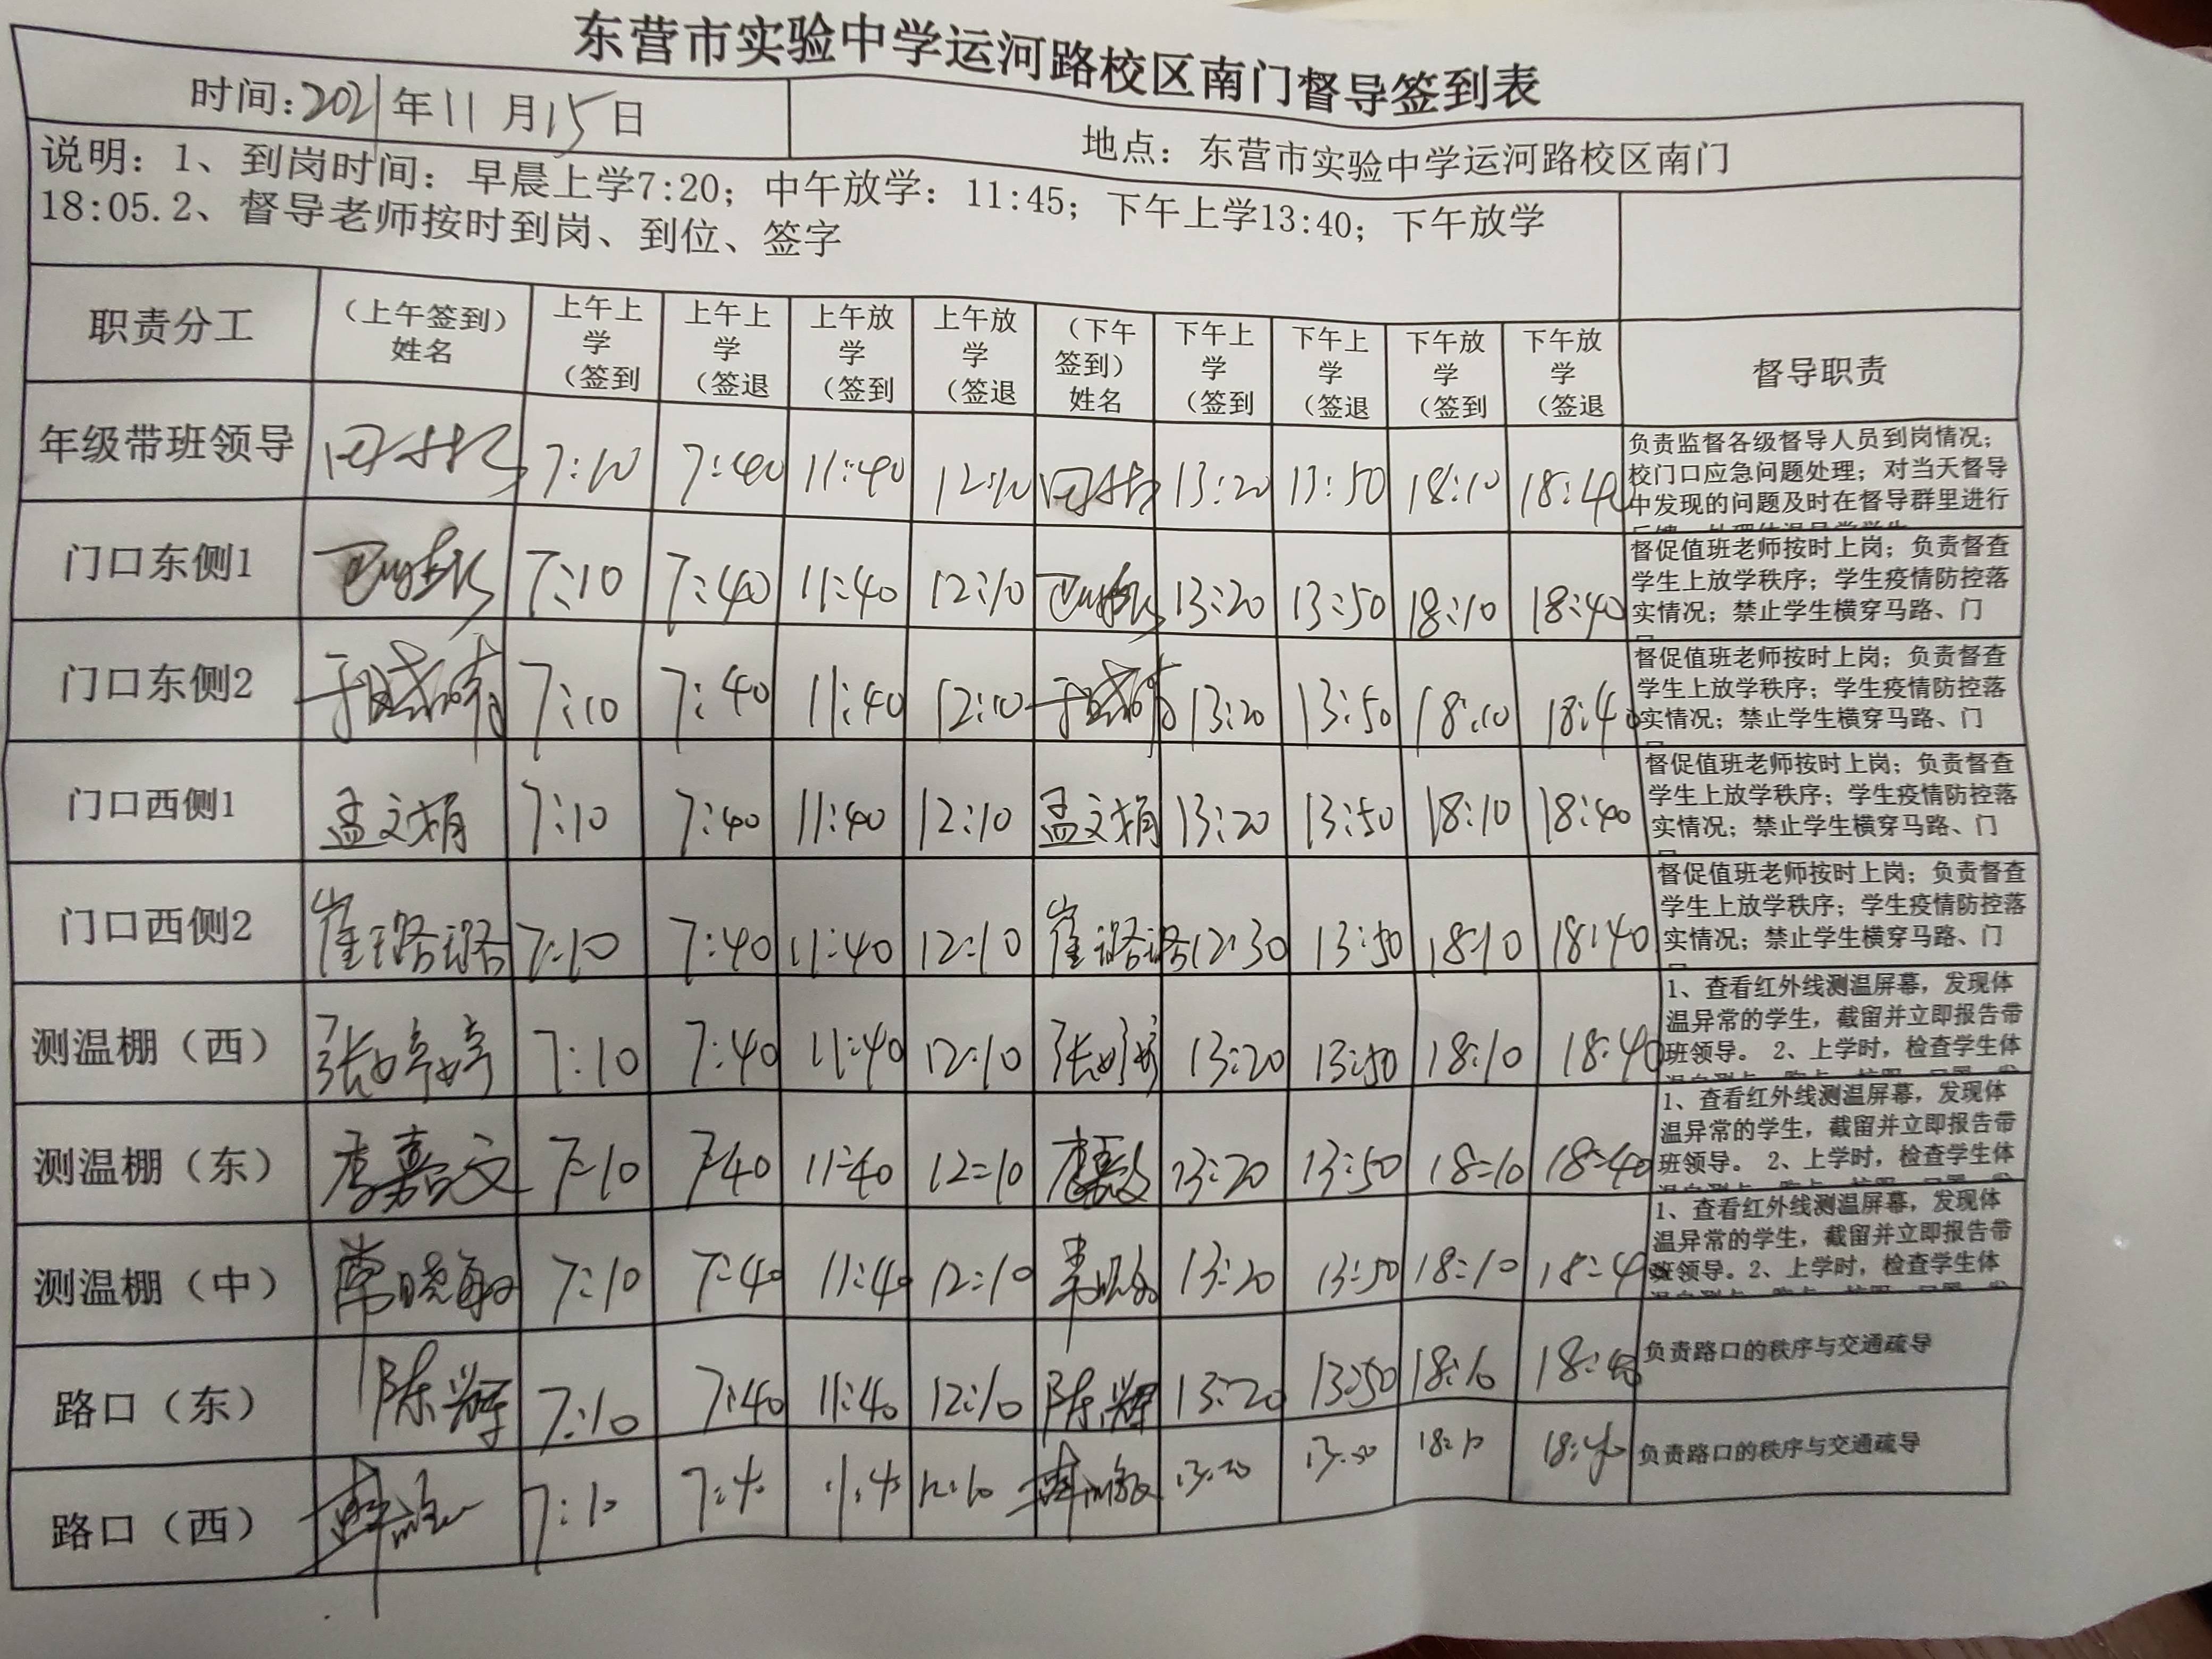 东营市实验中学运河路校区南门督导签到表
时间:2021年11月15日
地点：东营市实验中学运河路校区南门
说明：1、到岗时间：早晨上学7:20；中午放学：11:45；下午上学13:40；下午放学
18:05.2、督导老师按时到岗、到位、签字
职责分工 （上午签到）姓名 上午上学（签到 上午上学（签退 上午放学（签到 上午放学（签退 （下午签到）姓名 下午上学（签到 下午上学（签退 下午放学（签到 下午放学（签退 督导职责
年级带班领导 7:10 7:40 11:40 12:10 13:20 13:50 18:10 18:40
负责监督各级督导人员到岗情况；
校门口应急问题处理；对当天督导
中发现的问题及时在督导群里进行
门口东侧1 7:10 7:40 11:40 12:10 13:20 13:50 18:10 18:40
督促值班老师按时上岗；负责督查
学生上放学秩序；学生疫情防控落
实情况；禁止学生横穿马路、门
门口东侧2 于晓晴 7:10 7:40 11:40 12:10 于晓晴 13:20 13:50 18:10 18:40
督促值班老师按时上岗；负责督查
学生上放学秩序；学生疫情防控落
实情况；禁止学生横穿马路、门
门口西侧1 孟文娟 7:10 7:40 11:40 12:10 孟文娟 13:20 13:50 18:10 18:40
督促值班老师按时上岗；负责督查
学生上放学秩序；学生疫情防控落
实情况；禁止学生横穿马路、门
门口西侧2 崔璐璐 7:10 7:40 11:40 12:10 崔璐璐 12:30 13:50 18:10 18:40
督促值班老师按时上岗；负责督查
学生上放学秩序；学生疫情防控落
实情况；禁止学生横穿马路、门
测温棚（西） 张婷婷 7:10 7:40 11:40 12:10 张婷婷 13:20 13:50 18:10 18:40
1、查看红外线测温屏幕，发现体
温异常的学生，截留并立即报告带
班领导。 2、上学时，检查学生体
测温棚（东） 李嘉文 7:10 7:40 11:40 12:10 李嘉文 13:20 13:50 18:10 18:40
1、查看红外线测温屏幕，发现体
温异常的学生，截留并立即报告带
班领导。 2、上学时，检查学生体
测温棚（中） 常晓敏 7:10 7:40 11:40 12:10 常晓敏 13:20 13:50 18:10 18:40
1、查看红外线测温屏幕，发现体
温异常的学生，截留并立即报告带
班领导。2、上学时，检查学生体
路口（东） 陈辉 7:10 7:40 11:40 12:10 陈辉 13:20 13:50 18:10 18:40 负责路口的秩序与交通疏导
路口（西） 7:10 7:40 11:40 12:10 13:20 13:50 18:10 18:40 负责路口的秩序与交通疏导